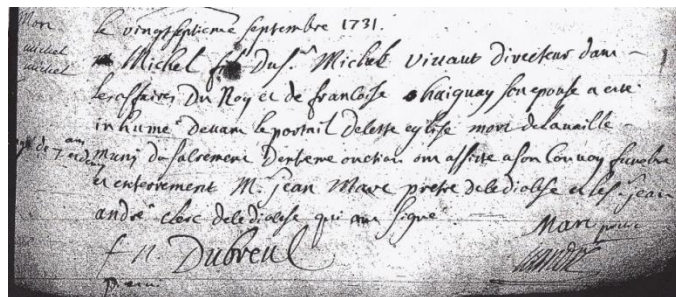 Mort
michel
michel
le vingt septieme septembre 1731.
Michel fils du s.r Michel vivant directeur dans
les affaires du Roy et de francoise haiguay son epouse a eté
inhumé devant le portail de cette eglise mort de la veille
agé de 7 ans
muny du sacrement d'extreme onction ont assisté a son convoy funebre
et enterrement M.r jean Marc pretre de le diocese et les jean
andré clerc de le diocese qui ont signé
Marc pretre
f n. Dubreul